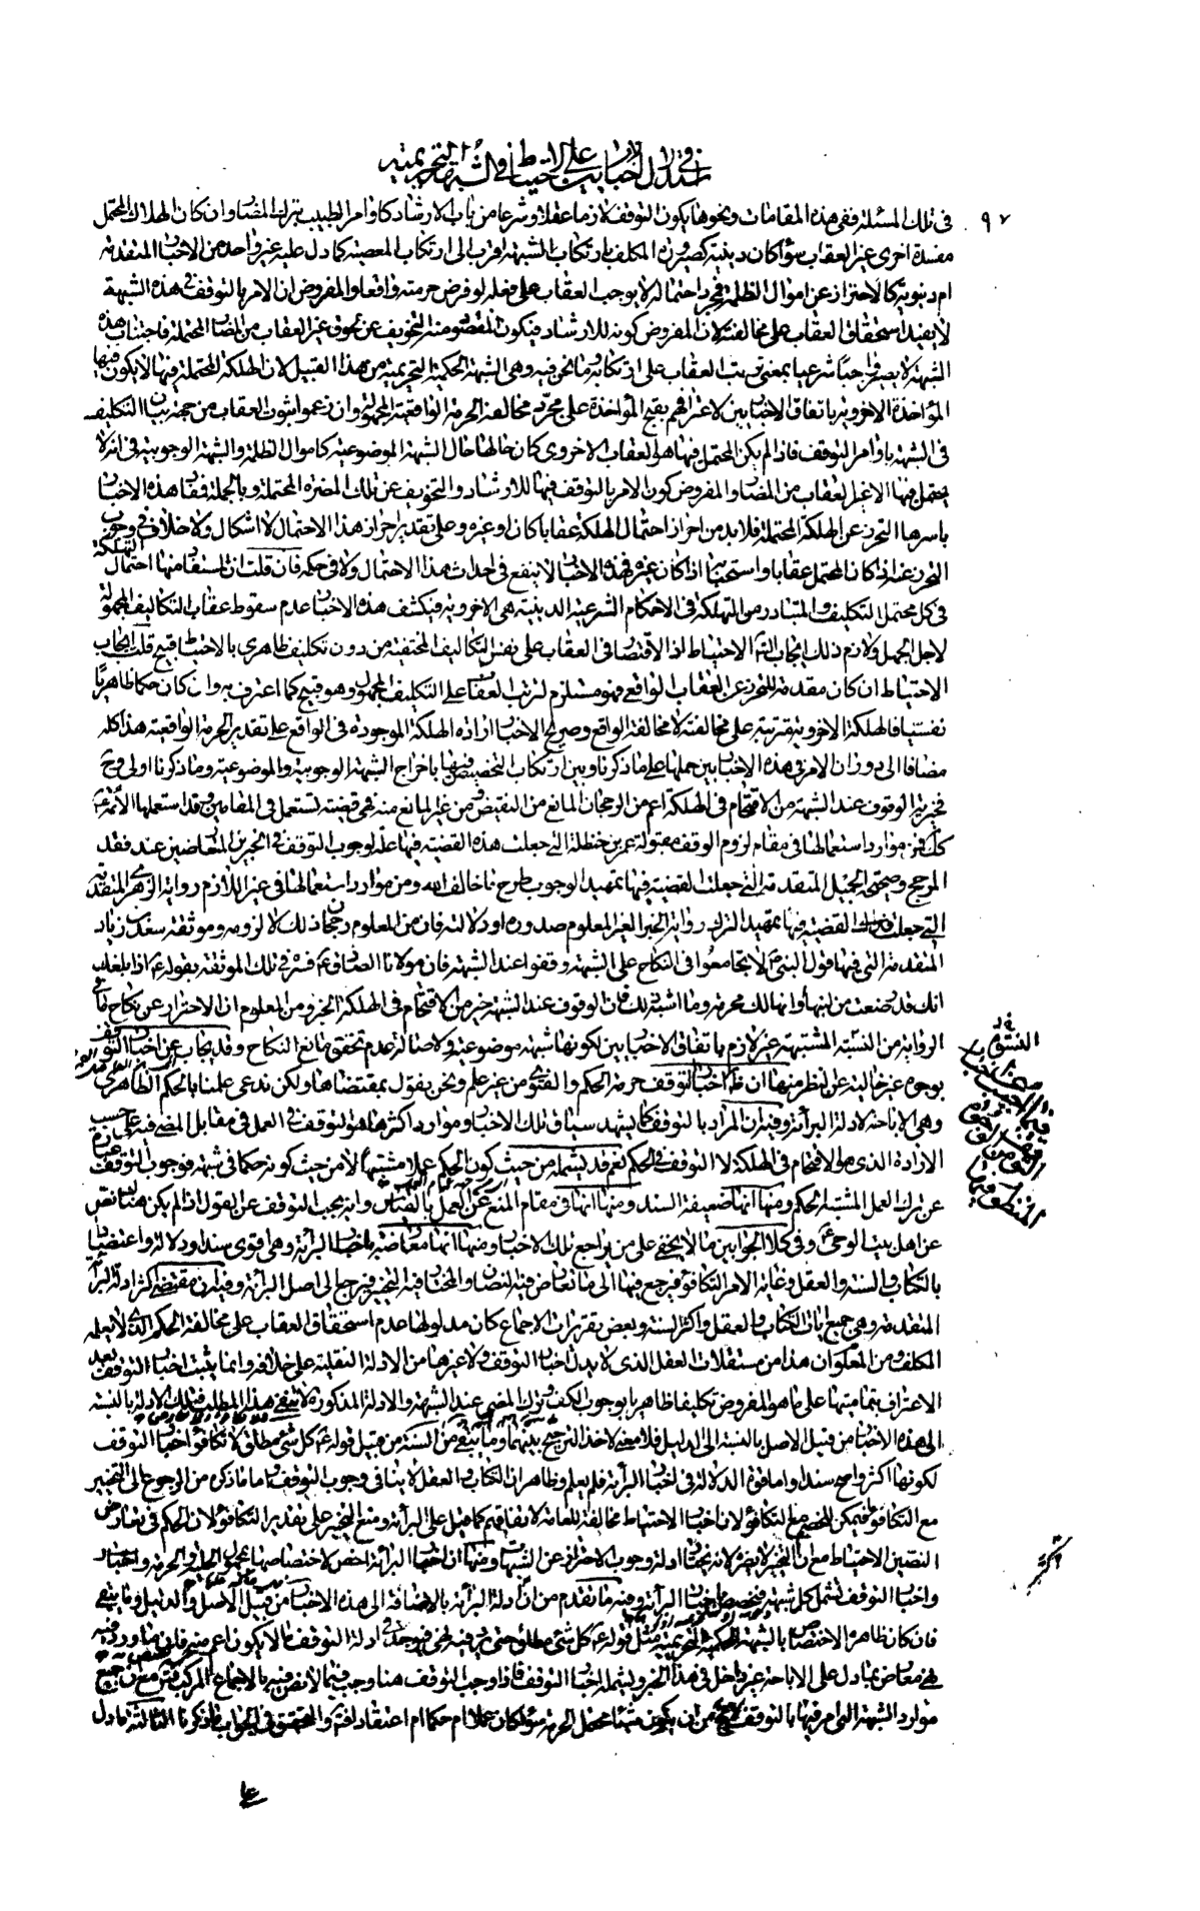 في الاستدلال بالاخبار على الاحتياط في الشبهة التحريمية
٩٧
في تلك المسئلة ففي هذه المقامات ونحوها يكون التوقف لازما عقلا وشرعا من باب الارشاد كاوامر الطبيب بترك المضار وان كان الهلاك المحتمل
مفسدة اخرى غير العقاب سواء كان دينية كصيرورة المكلف بارتكاب الشبهة اقرب الى ارتكاب المعصية كما دل عليه غير واحد من الاخبار المتقدمة
ام دنيوية كالاحتراز عن اموال الظلمة فمجرد احتماله لا يوجب العقاب على فعله لو فرض حرمته واقعا والمفروض ان الامر بالتوقف في هذه الشبهة
لا يفيد استحقاق العقاب على مخالفته لان المفروض كونه للارشاد فيكون المقصود منه التخويف عن لحوق غير العقاب من المضار المحتملة فاجتناب هذه
الشبهة لا يصير واجبا شرعيا بمعنى ترتب العقاب على ارتكابه وما نحن فيه وهي الشبهة الحكمية التحريمية من هذا القبيل لان الهلكة المحتملة فيها لا يكون فيها
المؤاخذة الاخروية باتفاق الاخباريين لاعترافهم بقبح المؤاخذة على مجرد مخالفة الحرمة الواقعية المجهولة وان زعموا ثبوت العقاب من جهة بيان التكليف
في الشبهة باوامر التوقف فاذا لم يكن المحتمل فيها هو العقاب الاخروي كان حالها حال الشبهة الموضوعية كاموال الظلمة والشبهة الوجوبية في انه لا
يحتمل فيها الا غير العقاب من المضار والمفروض كون الامر بالتوقف فيها للارشاد والتخويف عن تلك المضرة المحتملة وبالجملة فمفاد هذه الاخبار
باسرها التحرز عن الهلكة المحتملة فلا بد من احراز احتمال الهلكة عقابا كان او غيره وعلى تقدير احراز هذا الاحتمال لا اشكال ولا خلاف في وجوب
التحرز عنه اذا كان المحتمل عقابا واستحبابه اذا كان غيره فهذه الاخبار لا ينفع في احداث هذا الاحتمال ولا في حكمه فان قلت ان المستفاد منها احتمال التهلكة
في كل محتمل التكليف والمتبادر من التهلكة في الاحكام الشرعية الدينية هي الاخروية فيكشف هذه الاخبار عدم سقوط عقاب التكاليف المجهولة
لاجل الجهل ولازم ذلك ايجاب الشارع الاحتياط اذ الاقتصار في العقاب على نفس التكاليف المختفية من دون تكليف ظاهري بالاحتياط قبيح قلت ايجاب
الاحتياط ان كان مقدمة للتحرز عن العقاب الواقعي فهو مستلزم لترتب العقاب على التكليف المجهول وهو قبيح كما اعترف به وان كان حكما ظاهريا
نفسيا فالهلكة الاخروية مترتبة على مخالفته لا مخالفة الواقع وصريح الاخبار ارادة الهلكة الموجودة في الواقع على تقدير الحرمة الواقعية هذا كله
مضافا الى دوران الامر في هذه الاخبار بين حملها على ما ذكرنا وبين ارتكاب التخصيص فيها باخراج الشبهة الوجوبية والموضوعية وما ذكرنا اولى وح
فخيرية الوقوف عند الشبهة من الاقتحام في الهلكة اعم من الرجحان المانع من النقيض ومن غير المانع منه فهي قضية تستعمل في المقامين وقد استعملها الأئمة ع
كك فمن موارد استعمالها في مقام لزوم التوقف مقبولة عمر بن حنظلة التي جعلت هذه القضية فيها علة لوجوب التوقف في الخبرين المتعارضين عند فقد
المرجح وصحيحة الجميل المتقدمة التي جعلت القضية فيها تمهيدا لوجوب طرح ما خالف كتاب الله ومن موارد استعمالها في غير اللازم رواية الزهري المتقدمة
التي جعلت القضية فيها تمهيدا لترك رواية الخبر الغير المعلوم صدوره او دلالته فان من المعلوم رجحان ذلك لا لزومه وموثقة سعد بن زياد
المتقدمة التي فيها قول النبي ص لا تجامعوا في النكاح على الشبهة وقفوا عند الشبهة فان مولانا الصادق ع فسره في تلك الموثقة بقوله ع اذا بلغك
انك قد رضعت من لبنها وانها لك محرمة وما اشبه ذلك فان الوقوف عند الشبهة خير من الاقتحام في الهلكة الخبر ومن المعلوم ان الاحتراز عن نكاح ما في
الرواية من النسوة المشتبهة غير لازم باتفاق الاخباريين لكونها شبهة موضوعية ولاصالة عدم تحقق مانع النكاح وقد يجاب عن اخبار التوقف
بوجوه غير خالية عن النظر منها ان ظاهر اخبار التوقف حرمة الحكم والفتوى من غير علم ونحن نقول بمقتضاها ولكن ندعي علمنا بالحكم الظاهري
وهي الاباحة لادلة البرائة وفيه ان المراد بالتوقف كما يشهد سياق تلك الاخبار وموارد اكثرها هو التوقف في العمل في مقابل المضي فيه على حسب
الارادة الذي هو الاقتحام في الهلكة لا التوقف في الحكم نعم قد يشمله من حيث كون الحكم عملا مشتبها لا من حيث كونه حكما في شبهة فوجوب التوقف عبارة
عن ترك العمل المشتبه الحكم ومنها انها ضعيفة السند ومنها انها في مقام المنع عن العمل بالقياس وانه يجب التوقف عن القول اذا لم يكن هنا نص
عن اهل بيت الوحي ع وفي كلا الجوابين ما لا يخفى على من يراجع تلك الاخبار ومنها انها معارضة باخبار البرائة وهي اقوى سندا ودلالة واعتضادا
بالكتاب والسنة والعقل وغاية الامر التكافؤ فيرجع فيها الى ما تعارض فيه النصان والمختار فيه التخيير فيرجع الى اصل البرائة وفيه ان مقتضى اكثر ادلة البرائة
المتقدمة وهي جميع ايات الكتاب والعقل واكثر السنة وبعض تقريرات الاجماع كان مدلولها عدم استحقاق العقاب على مخالفة الحكم الذي لا يعلمه
المكلف ومن المعلوم ان هذا من مستقلات العقل الذي لا يدل اخبار التوقف ولا غيرها من الادلة النقلية على خلافه وانما يثبت اخبار التوقف بعد
الاعتراف بتماميتها على ما هو المفروض تكليفا ظاهريا بوجوب الكف وترك المضي عند الشبهة والادلة المذكورة لا ينفي هذا المطلب فتلك الادلة بالنسبة
الى هذه الاخبار من قبيل الاصل بالنسبة الى الدليل فلا معنى لاخذ الترجيح بينهما وما يبقى من السنة من قبيل قوله ع كل شئ مطلق لا تكافؤ اخبار التوقف
لكونها اكثر واصح سندا واما قوة الدلالة في اخبار البرائة فلم يعلم وظاهر ان الكتاب والعقل لا ينافي وجوب التوقف واما ما ذكره من الرجوع الى التخيير
مع التكافؤ فيمكن للخصم منع التكافؤ لان اخبار الاحتياط مخالفة للعامة لاتفاقهم كما قيل على البرائة ومنع التخيير على تقدير التكافؤ لان الحكم في تعارض
النصين الاحتياط مع ان التخيير لا يضره لانه يختار ادلة وجوب الاحتراز عن الشبهات ومنها ان اخبار البرائة اخص لاختصاصها بمجهول الحلية والحرمة
واخبار التوقف تشمل كل شبهة فتخصص باخبار البرائة وفيه ما تقدم من ان ادلة البرائة بالاضافة الى هذه الاخبار من قبيل الاصل والدليل وما يبقى
فان كان ظاهره الاختصاص بالشبهة الحكمية التحريمية مثل قوله ع كل شئ مطلق حتى يرد فيه نهي فيوجد في ادلة التوقف ما لا يكون اعم منه فان ما ورد فيه
نهي معارض بما دل على الاباحة غير داخل في هذا الخبر ويشمله اخبار التوقف فاذا وجب التوقف هنا وجب فيما لا نص فيه بالاجماع المركب فتامل مع ان جميع
موارد الشبهة التي امر فيها بالتوقف لا تخلو من ان يكون شيئا محتمل الحرمة سواء كان عملا ام حكما ام اعتقادا فتامل والتحقيق في الجواب ما ذكرنا الثالثة ما دل
على